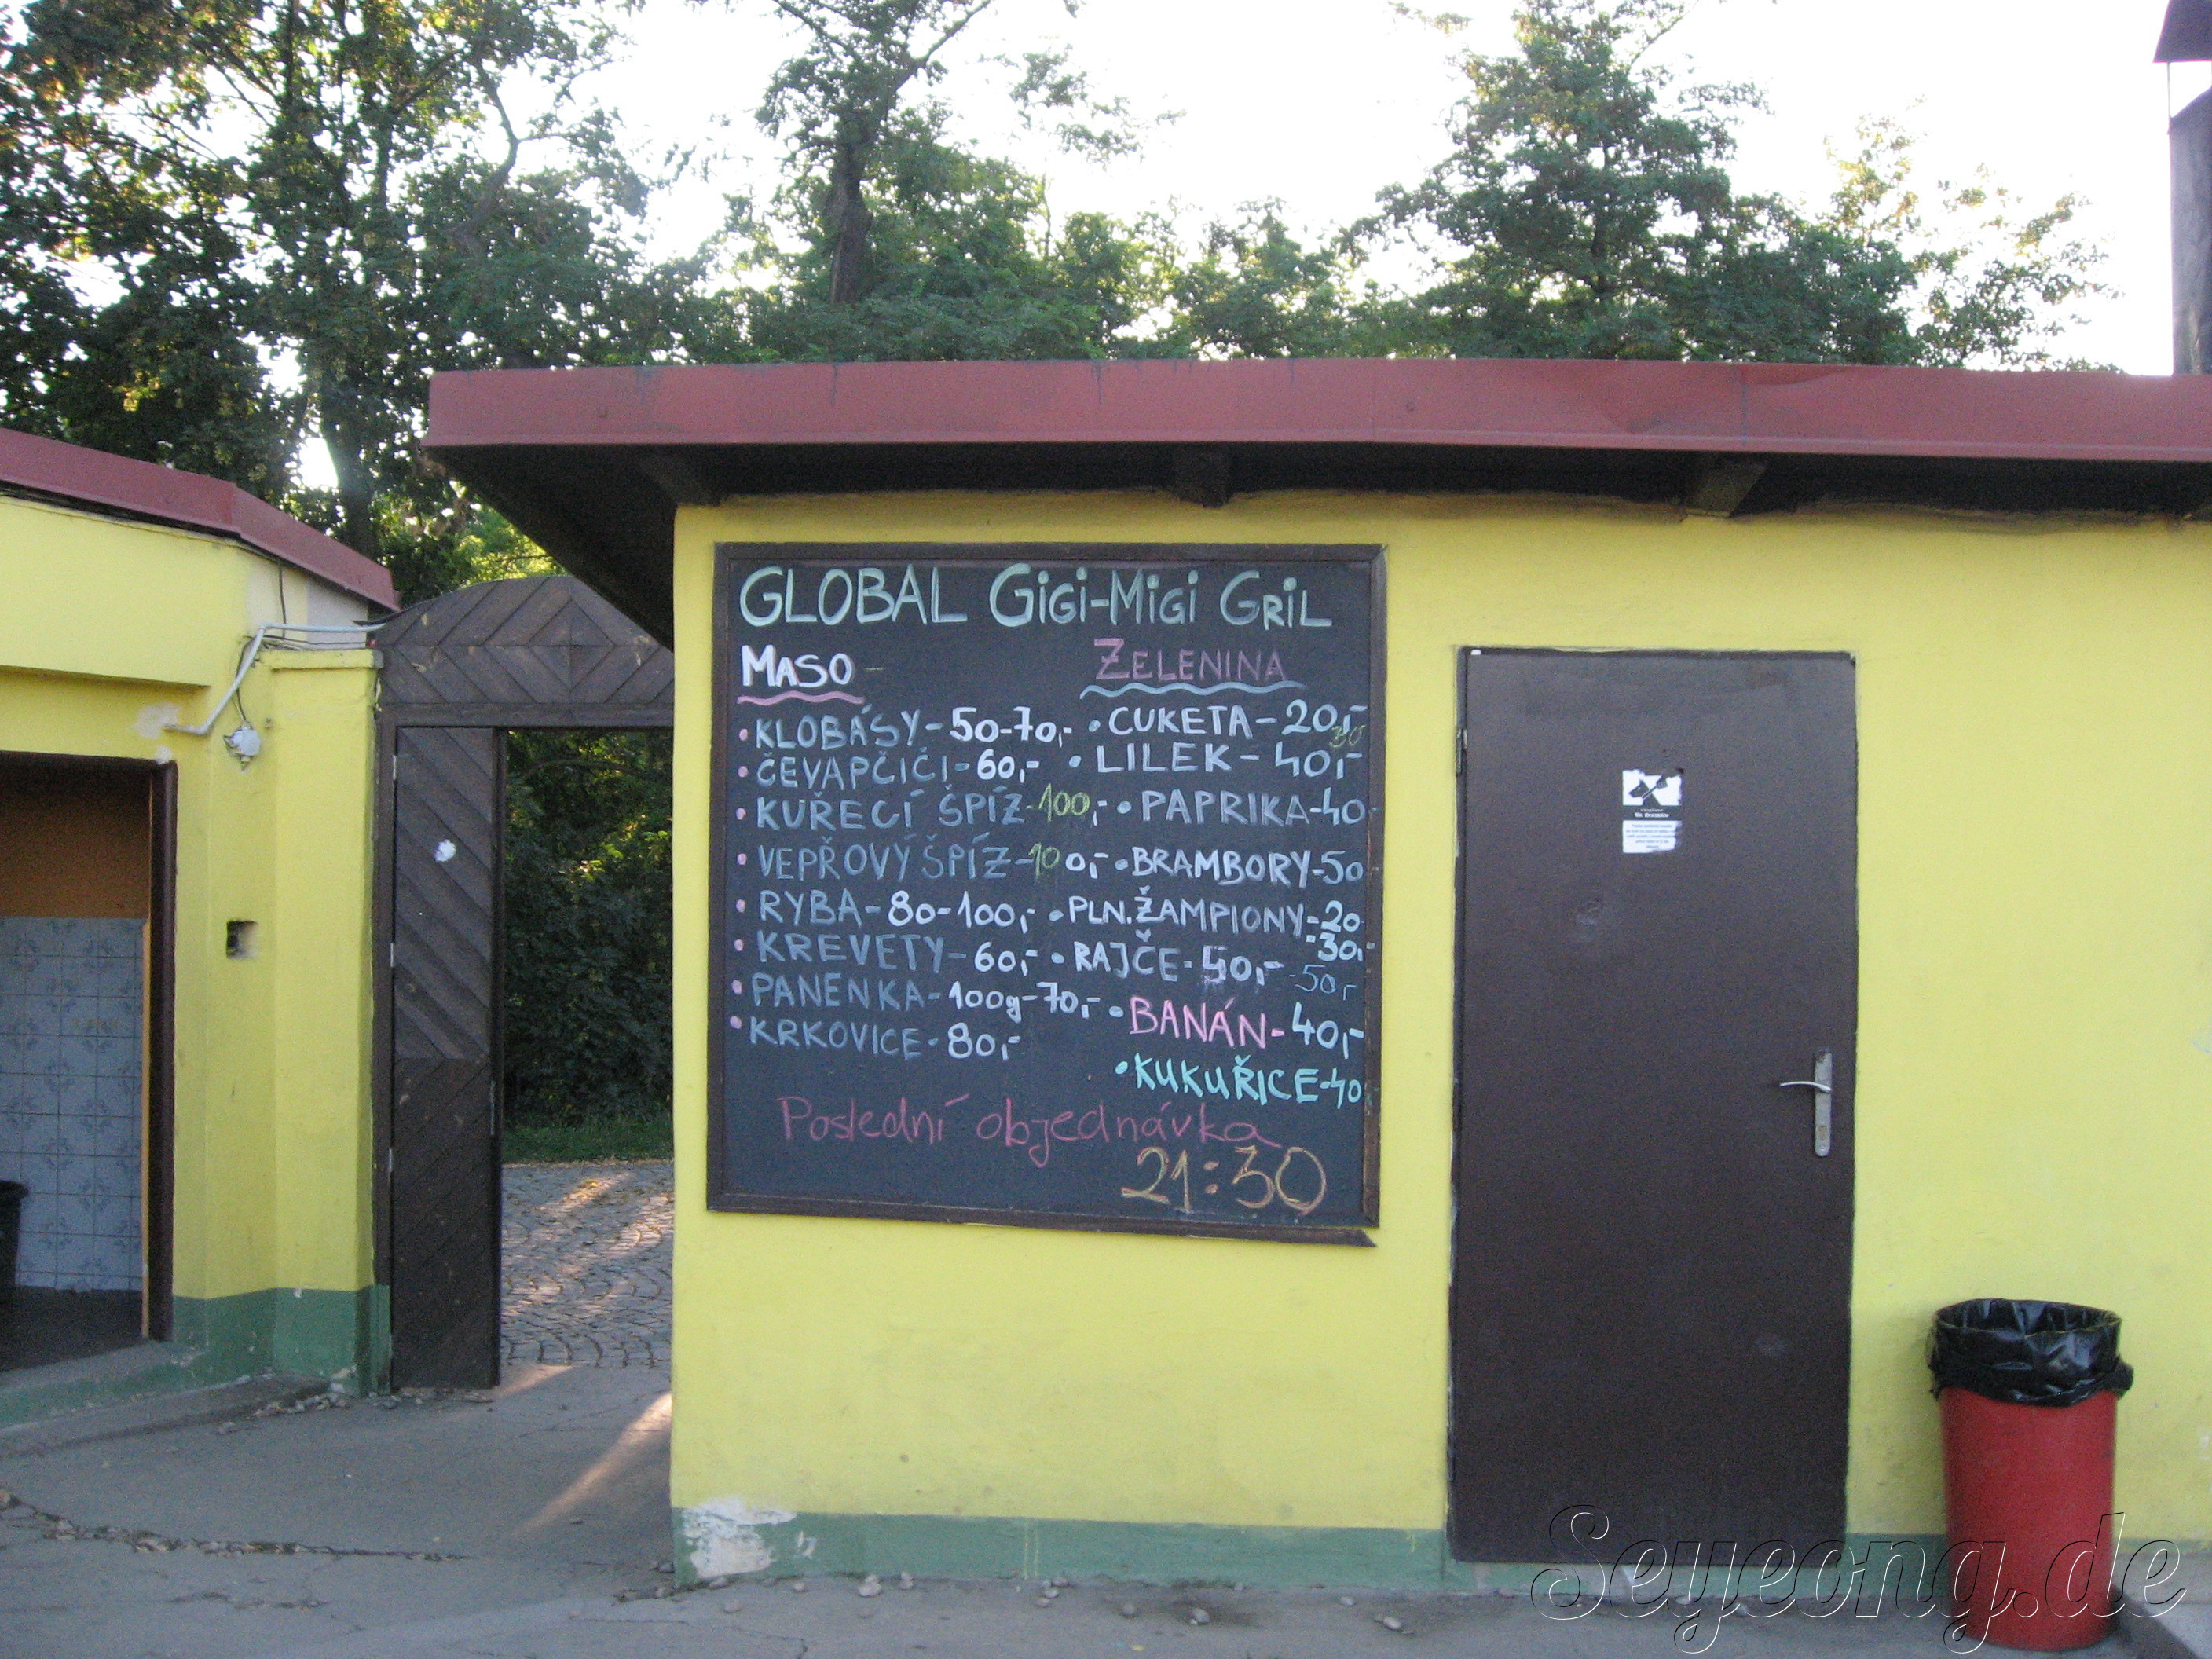 GLOBAL GiGi-MiGi GRiL
MASO
KLOBÁSY-50-70,-
ČEVAPČIČI-60,-
KUŘECÍ ŠPÍZ-100,-
VEPŘOVÝ ŠPÍZ-100,-
RYBA-80-100,-
KREVETY-60,-
PANENKA-100g-70,-
KRKOVICE-80,-
ZELENINA
CUKETA-20,-
30
LILEK-40,-
PAPRIKA-40
BRAMBORY-50
PLN.ŽAMPIONY-20
-30,-
RAJČE-50,- -50,-
BANÁN-40,-
KUKUŘICE-40
Poslední objednávka
21:30
Seyeong.de